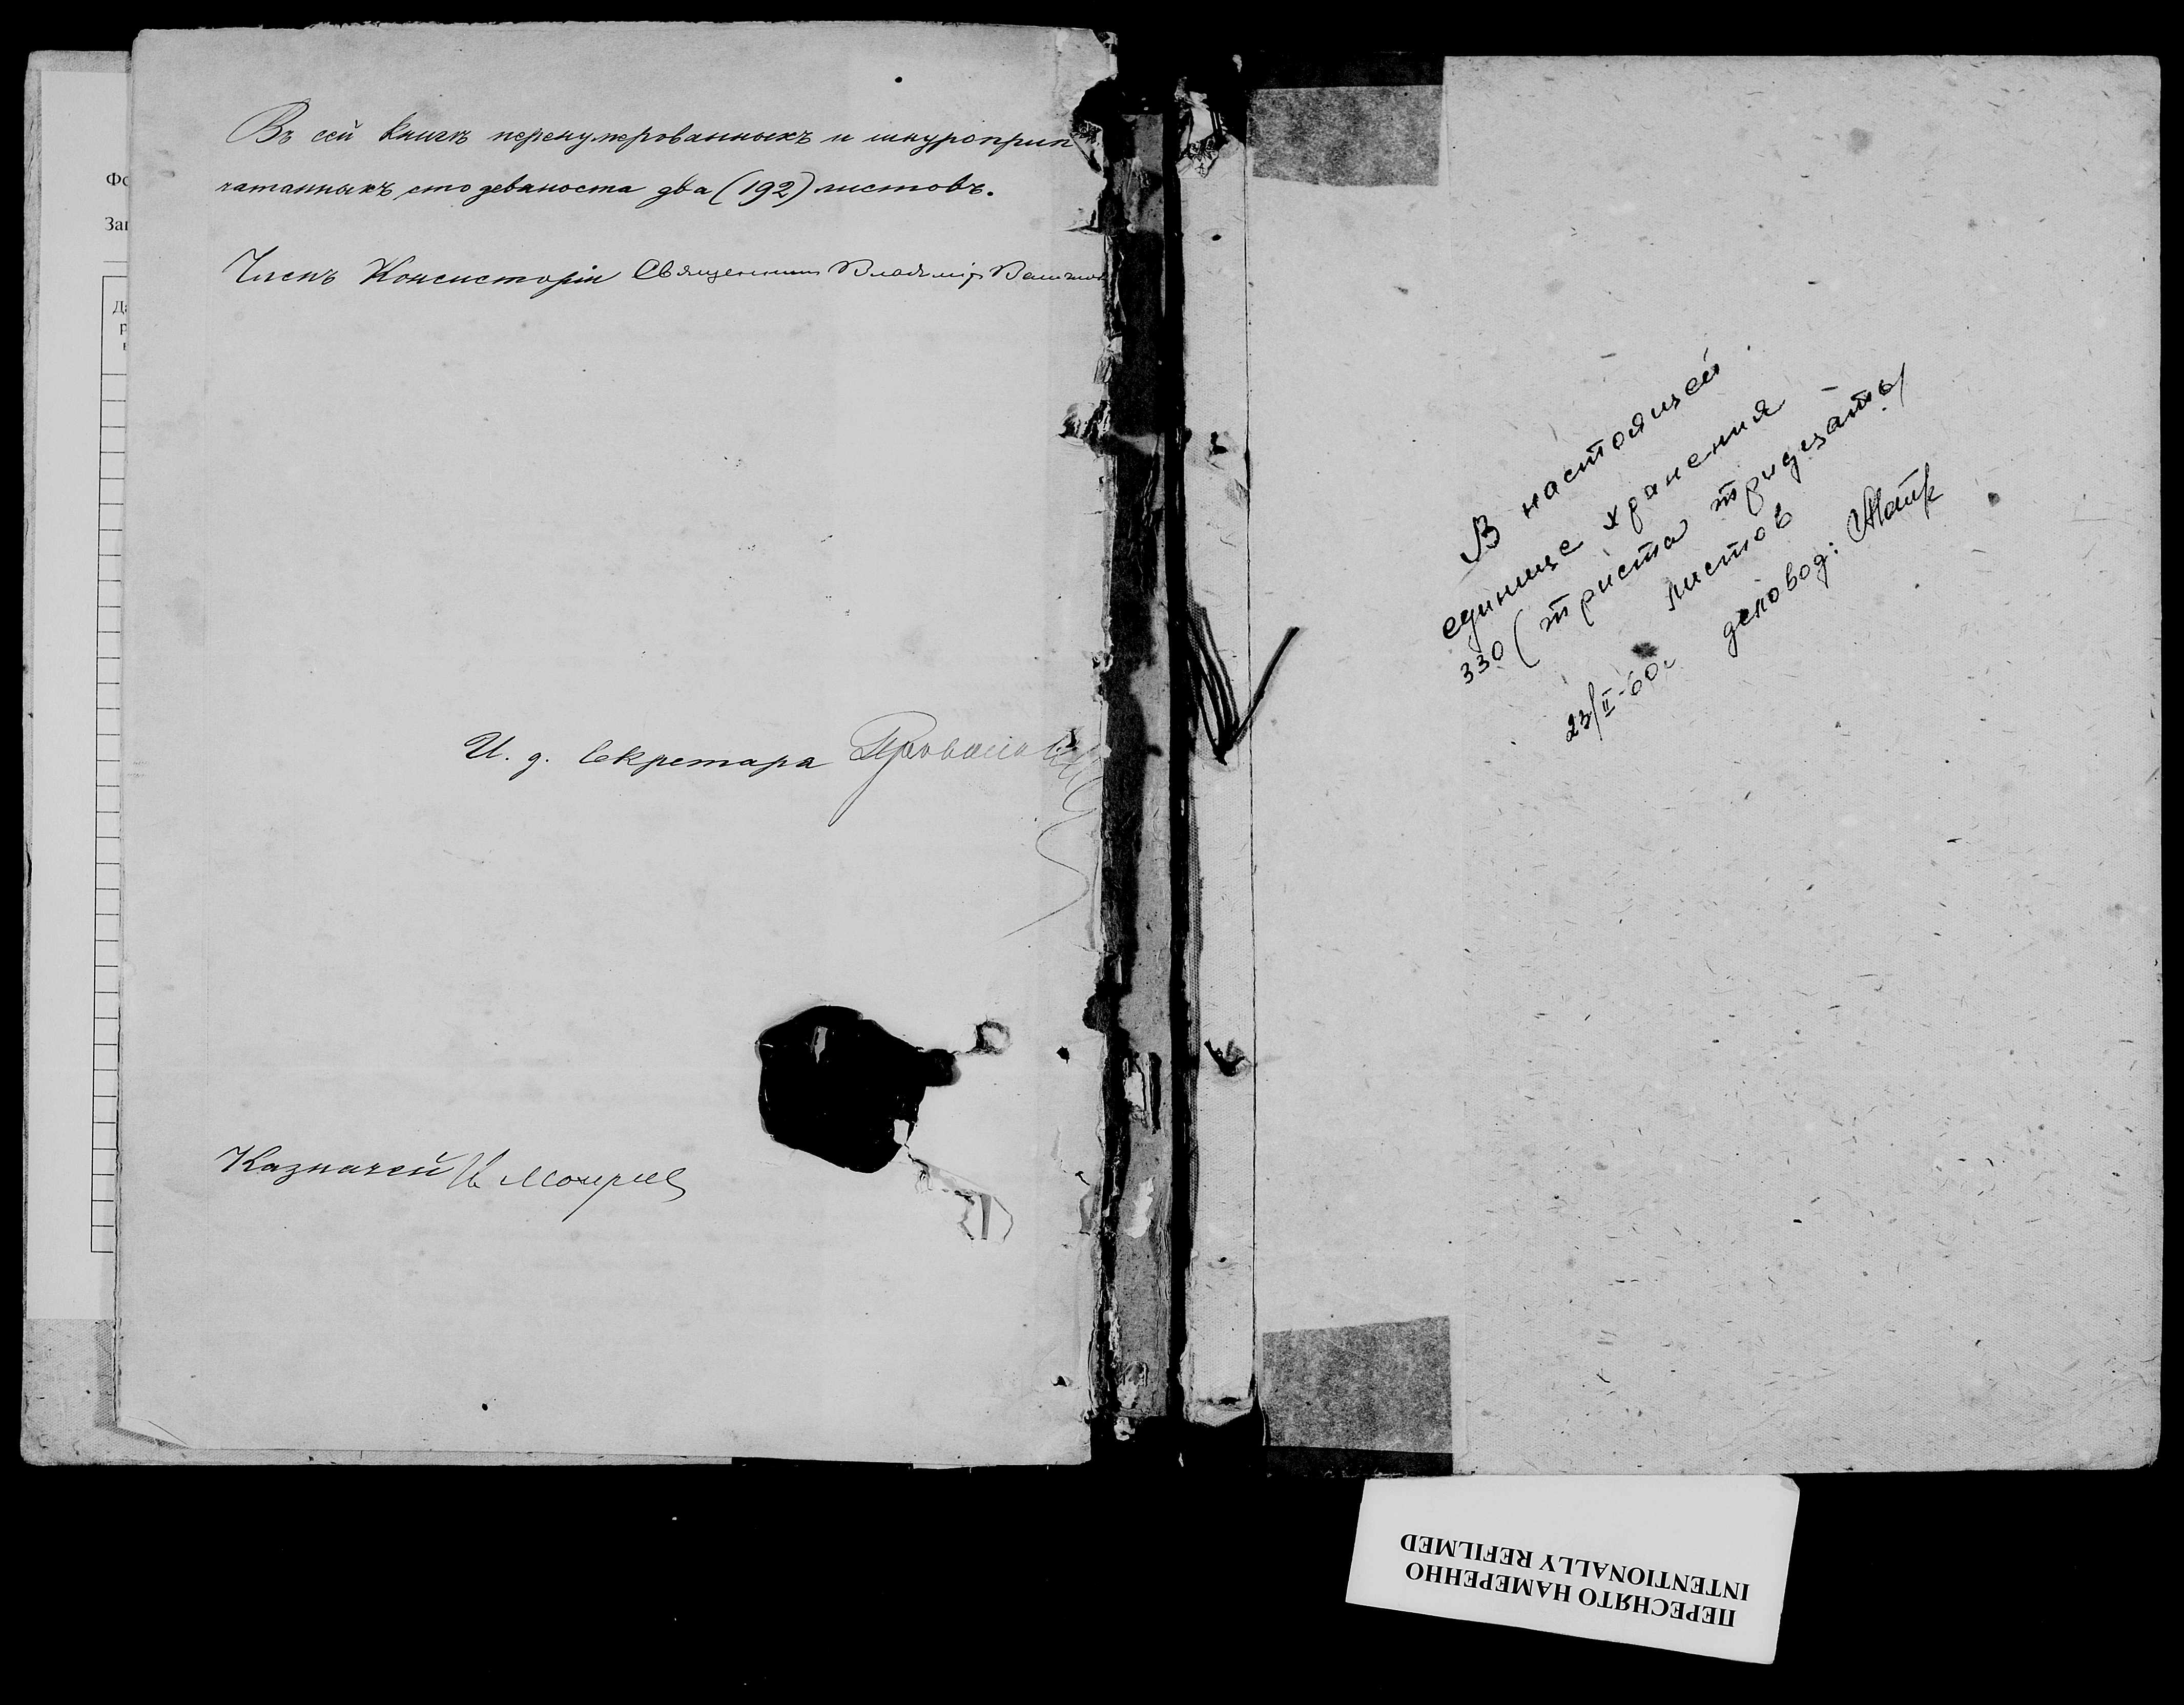 Въ сей книгѣ перенумерованныхъ и шнуроприпе
чатанныхъ сто девяноста два (192) листовъ.
Членъ Консисторіи Священникъ Владиміръ
И. д. Секретаря
Казначей
В настоящей
единице хранения
330 (триста тридцать)
листов
23/II-60г деловод:
ПЕРЕСНЯТО НАМЕРЕННО
INTENTIONALLY REFILMED